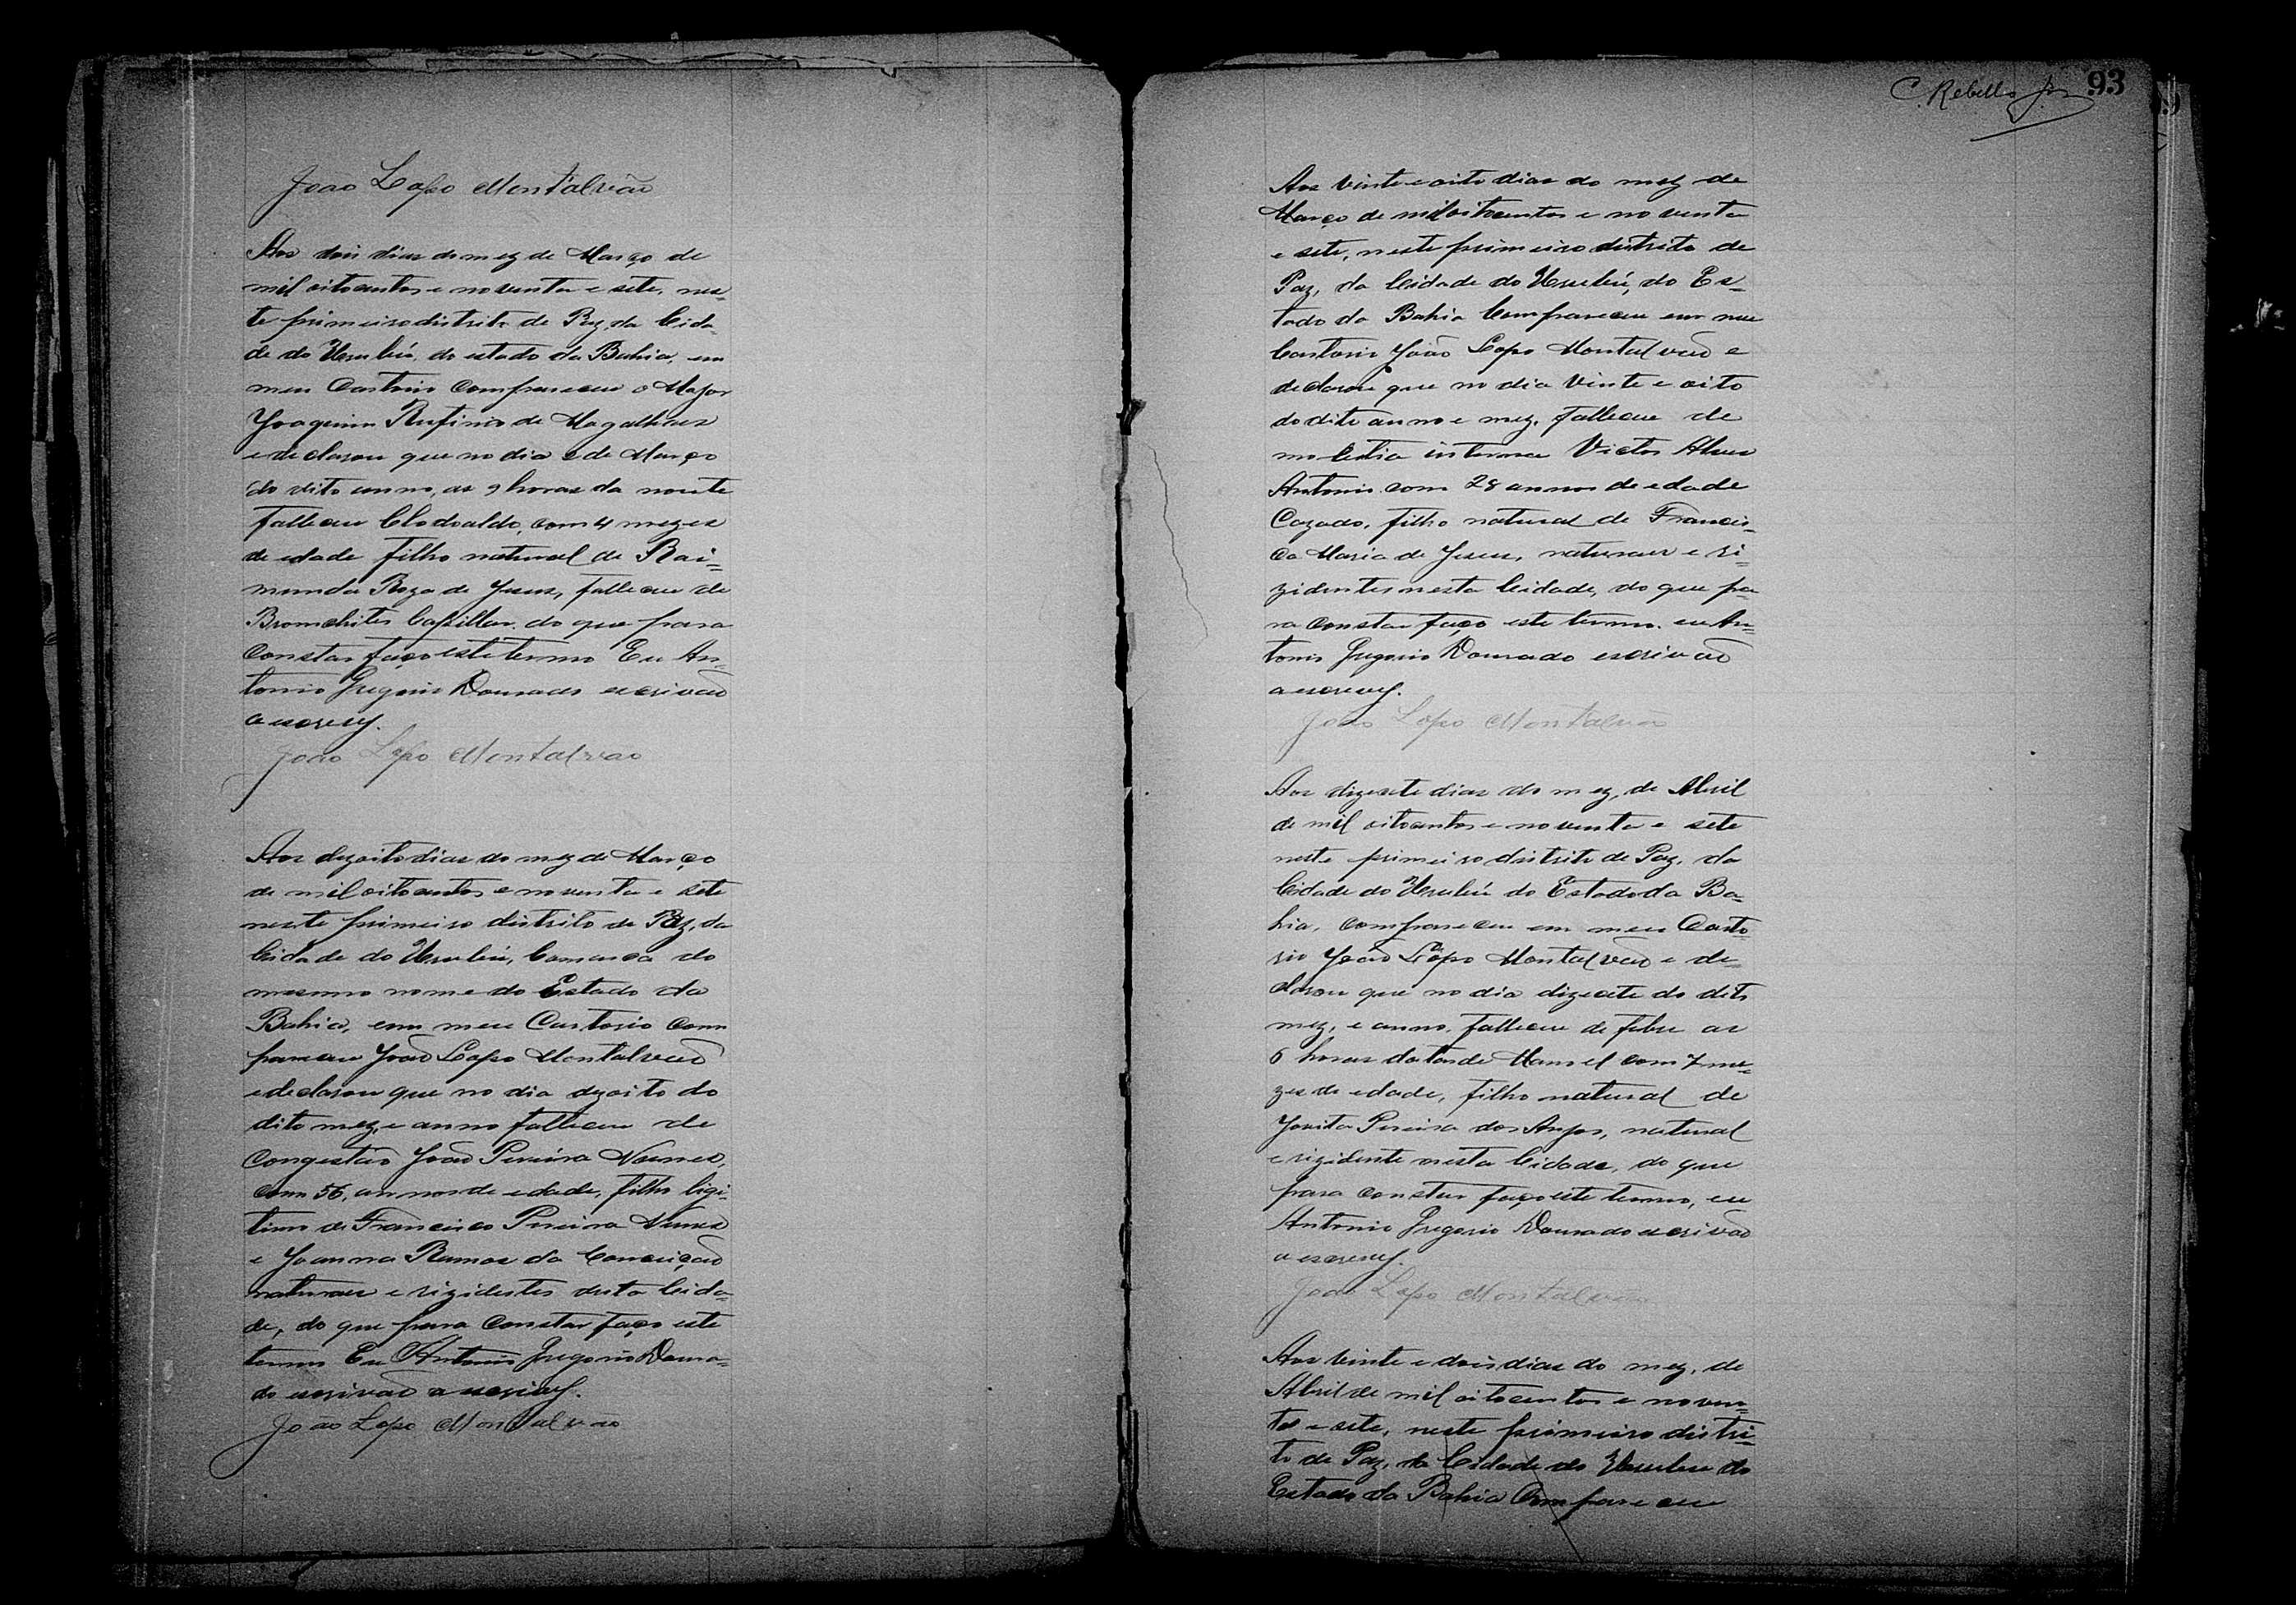 João Lopo Montalvão
Aos dois dias do mez de Março de
mil oitocentos e noventa e sete, nes=
te primeiro distrito de Paz, da Cida=
de do Urubú, do estado da Bahia, em
meu Cartorio compareceu o Major
Joaquim Rufino de Magalhães
e declarou que no dia 2 de Março
do dito anno, as 9 horas da noute
falleceu Clodoaldo, com 4 mezes
de edade filho natural de Rai=
munda Roza de Jesus, falleceu de
Bronchites Capillar. do que para
constar faço este termo Eu An=
tonio Gregorio Dourado escrivaõ
a escrevy.
João Lopo Montalvão
Aos dezoito dias do mez de Março
de mil oitocentos e noventa e sete
neste primeiro distrito de Paz, da
Cidade do Urubú, Comarca do
mesmo nome do Estado da
Bahia, em meu Cartorio com
pareceu Joaõ Lopo Montalvaõ
e declarou que no dia dezoito do
dito mez, e anno falleceu de
Congestão Joaõ Pereira Nunes,
com 56, annos de edade, filho ligi=
timo de Francisco Pereira Nunes
e Joanna Ramos da Conceiçaõ
naturaes e rizidentes desta Cida=
de, do que para constar faço este
termo Eu Antonio Gregorio Doura=
do escrivaõ a escrevy.
João Lopo Montalvão
C. Rebello Jor 93
Aos vinte e oito dias do mez de
Março de mil oitocentos e noventa
e sete, neste primeiro distrito de
Paz, da Cidade do Urubú, do Es=
tado da Bahia Compareceu em meu
Cartorio João Lopo Montalvaõ e
declarou que no dia vinte e oito
do dito anno e mez, falleceu de
molestia interna Victor Alves
Antonio com 28 annos de edade
Cazado, filho natural de Francis=
ca Maria de Jesus, naturaes e ri=
zidentes nesta Cidade, do que pa=
ra constar faço este termo. eu An=
tonio Gregorio Dourado escrivaõ
a escrevy.
João Lopo Montalvão
Aos dizesete dias do mez, de Abril
de mil oitocentos e noventa e sete
neste primeiro distrito de Paz, da
Cidade do Urubú do Estado da Ba=
hia, compareceu em meu Carto=
rio Joaõ Lopo Montalvaõ e de=
clarou que no dia dizesete do dito
mez, e anno, falleceu de febre as
6 horas da tarde Manoel com 7 me=
zes de edade, filho natural de
Jovita Pereira dos Anjos, natural
e rizidente nesta Cidade, do que
para constar faço este termo, eu
Antonio Gregorio Dourado escrivaõ
a escrevy.
João Lopo Montalvão
Aos vinte e dois dias do mez, de
Abril de mil oitocentos e noven=
ta e sete, neste primeiro distri=
to de Paz, da Cidade do Urubú do
Estado da Bahia Compareceu